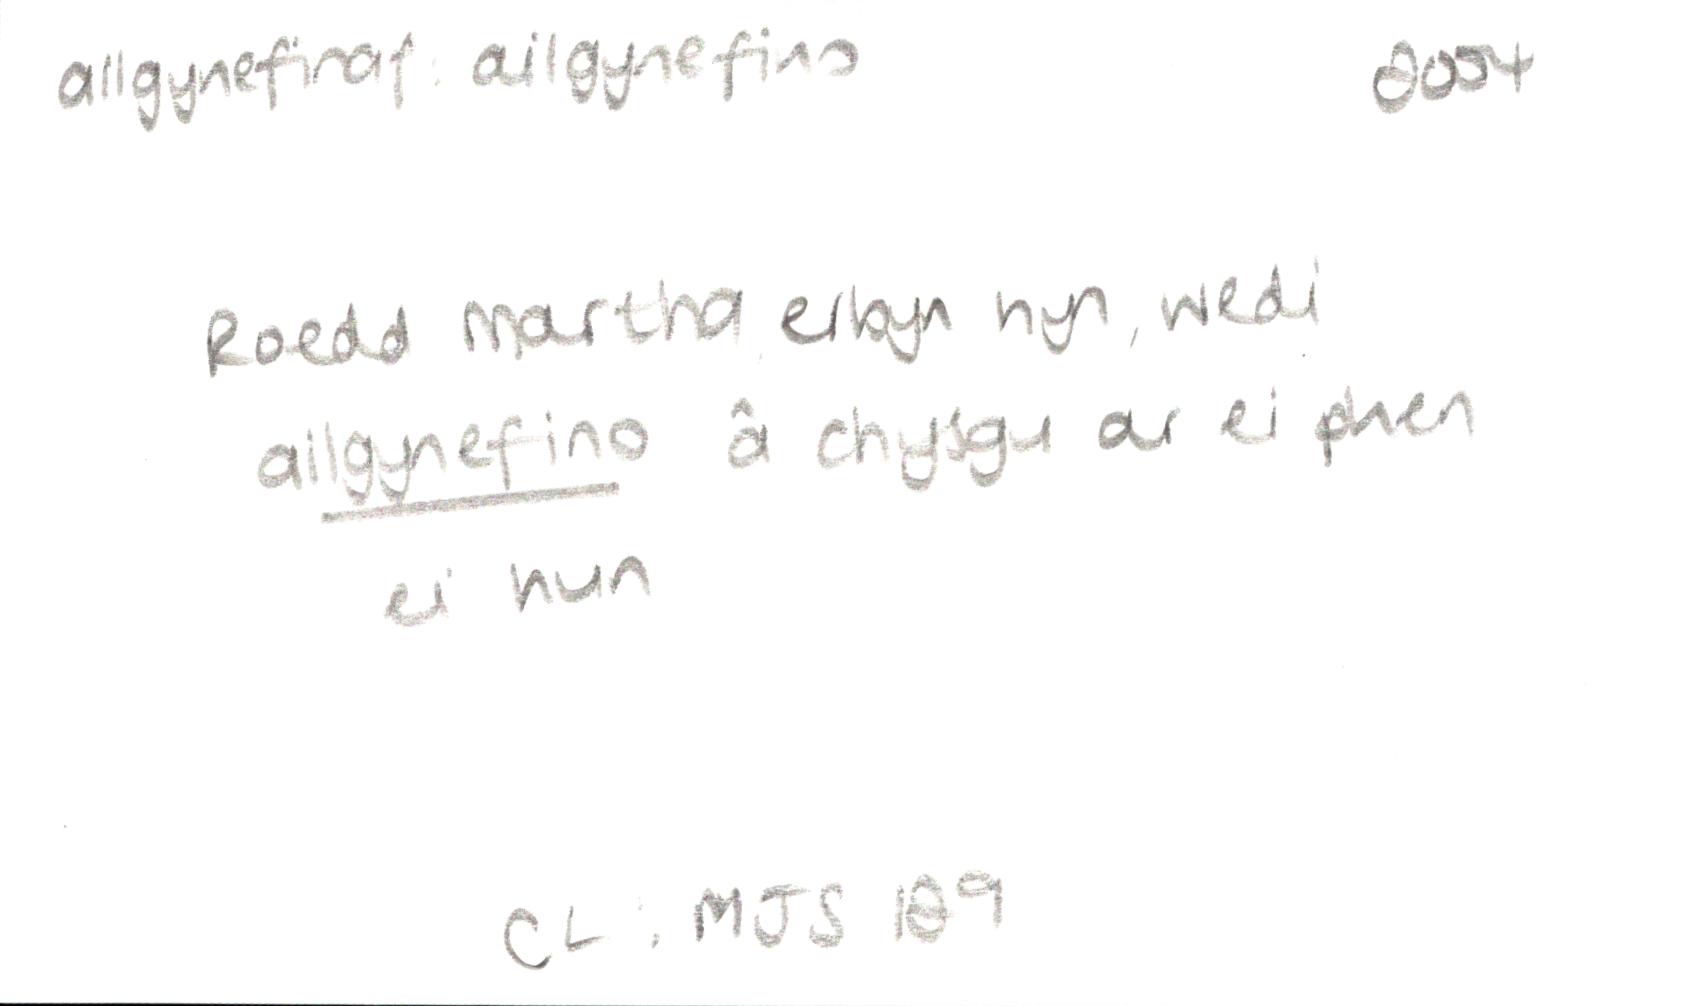 ailgynefinaf: ailgynefino 2004
Roedd Martha, erbyn hyn, wedi
ailgynefino â chysgu ar ei phen
ei hun
CL: MJS 189